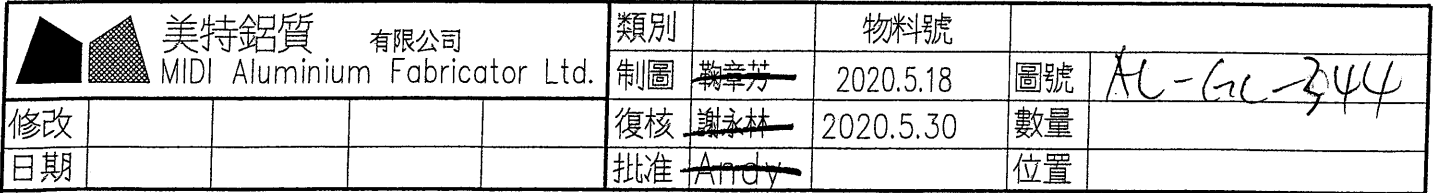 美特鋁質 有限公司
MIDI Aluminium Fabricator Ltd.
類別 物料號
制圖 鞠章芳 2020.5.18 圖號
修改 復核 謝永林 2020.5.30 數量
日期 批准 Andy 位置